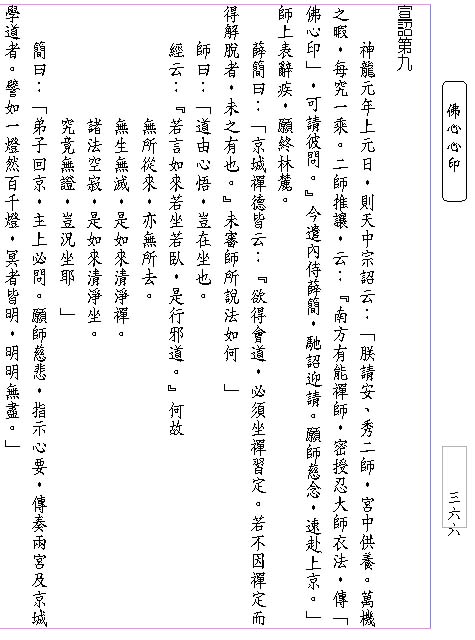 佛心心印
三六六
宣詔第九
神龍元年上元日，則天中宗詔云：「朕請安、秀二師，宮中供養。萬機
之暇，每究一乘。二師推讓，云：『南方有能禪師，密授忍大師衣法，傳「
佛心印」，可請彼問。』今遣內侍薛簡，馳詔迎請。願師慈念，速赴上京。」
師上表辭疾，願終林麓。
薛簡曰：「京城禪德皆云：『欲得會道，必須坐禪習定。若不因禪定而
得解脫者，未之有也。』未審師所說法如何　」
師曰：「道由心悟，豈在坐也。
經云：『若言如來若坐若臥，是行邪道。』何故
無所從來，亦無所去。
無生無滅，是如來清淨禪。
諸法空寂，是如來清淨坐。
究竟無證，豈況坐耶　」
簡曰：「弟子回京，主上必問。願師慈悲，指示心要，傳奏兩宮及京城
學道者。譬如一燈然百千燈，冥者皆明，明明無盡。」